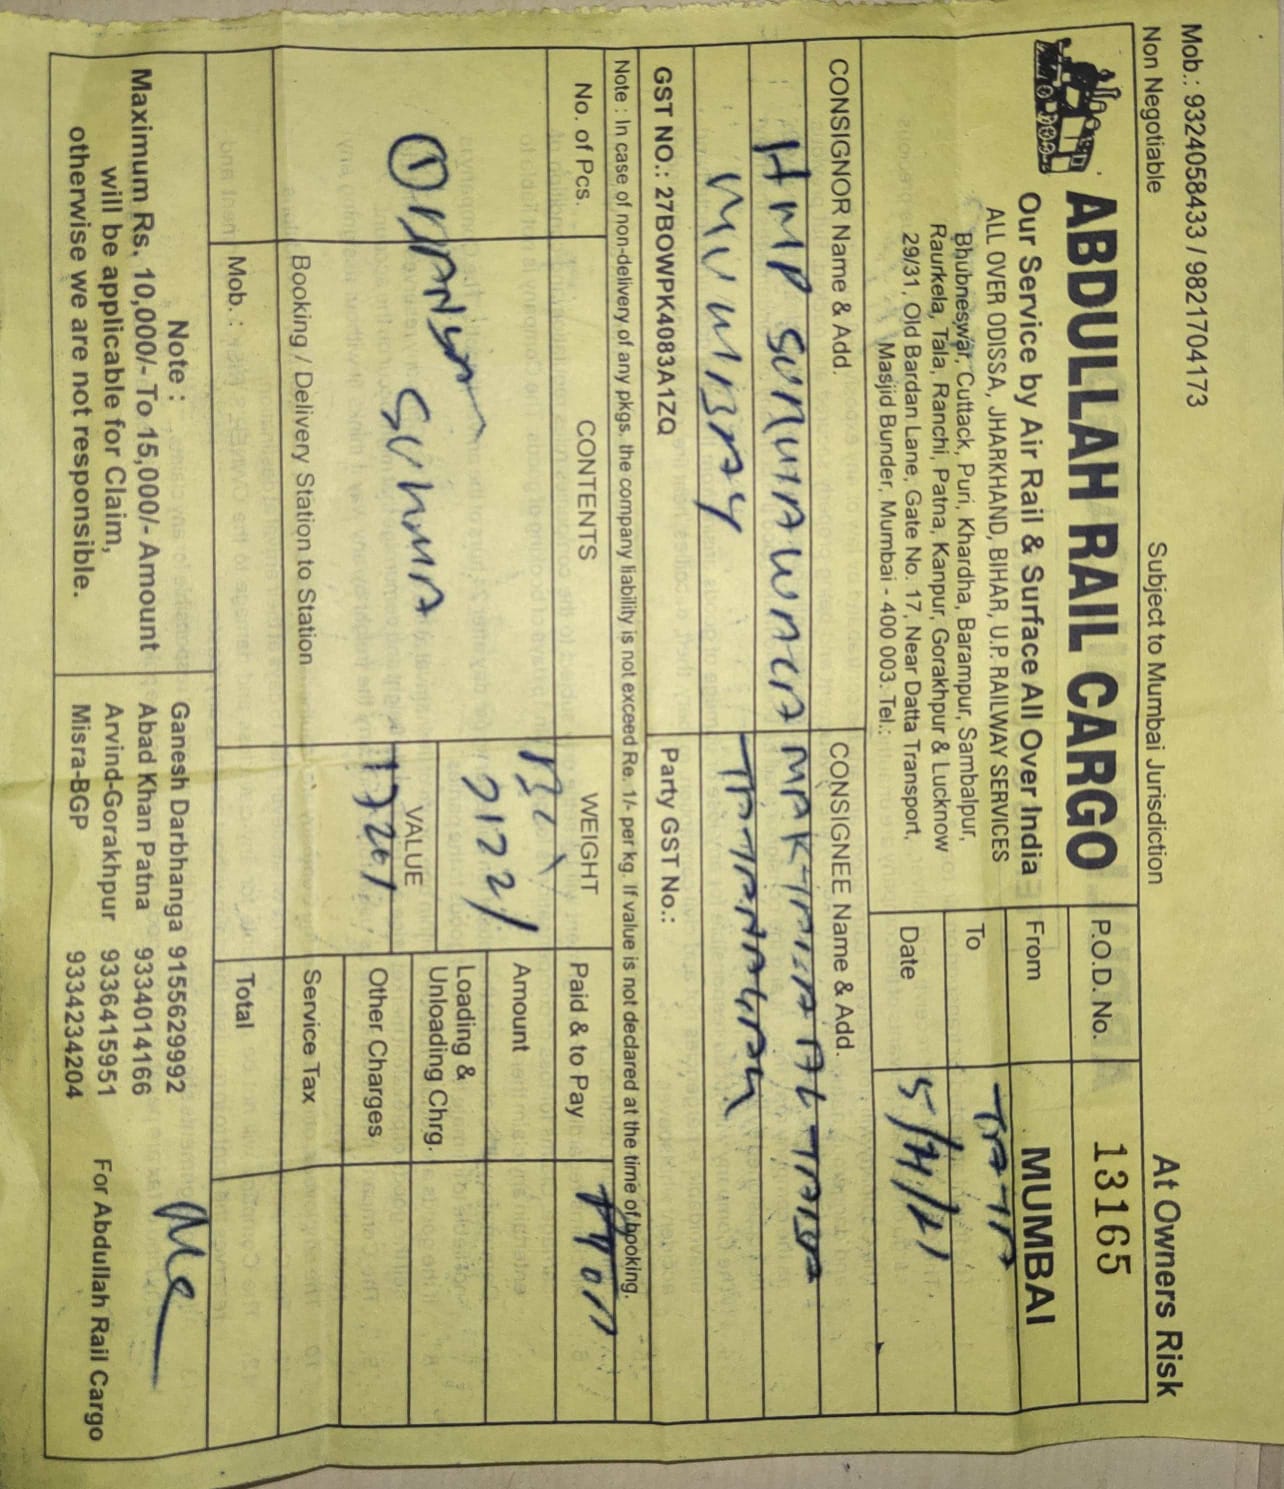 Mob.: 9324058433 / 9821704173
Non Negotiable
Subject to Mumbai Jurisdiction
At Owners Risk
ABDULLAH RAIL CARGO
Our Service by Air Rail & Surface All Over India
ALL OVER ODISSA, JHARKHAND, BIHAR, U.P. RAILWAY SERVICES
Bhubneswar, Cuttack, Puri, Khardha, Barampur, Sambalpur,
Raurkela, Tala, Ranchi, Patna, Kanpur, Gorakhpur & Lucknow
29/31, Old Bardan Lane, Gate No. 17, Near Datta Transport,
Masjid Bunder, Mumbai - 400 003. Tel.:
P.O.D. No. 13165
From MUMBAI
To TATA
Date 5/4/21
CONSIGNOR Name & Add.
HMP
MUMBAY
CONSIGNEE Name & Add.
GST NO.: 27BOWPK4083A1ZQ
Party GST No.:
Note : In case of non-delivery of any pkgs. the company liability is not exceed Re. 1/- per kg. If value is not declared at the time of booking.
No. of Pcs.
CONTENTS
WEIGHT
Paid & to Pay
①
Amount
VALUE
Loading &
Unloading Chrg.
Other Charges
Booking / Delivery Station to Station
Service Tax
Mob. :
Total
Note :
Maximum Rs. 10,000/- To 15,000/- Amount
will be applicable for Claim,
otherwise we are not responsible.
Ganesh Darbhanga 9155629992
Abad Khan Patna 9334014166
Arvind-Gorakhpur 9336415951
Misra-BGP 9334234204
For Abdullah Rail Cargo